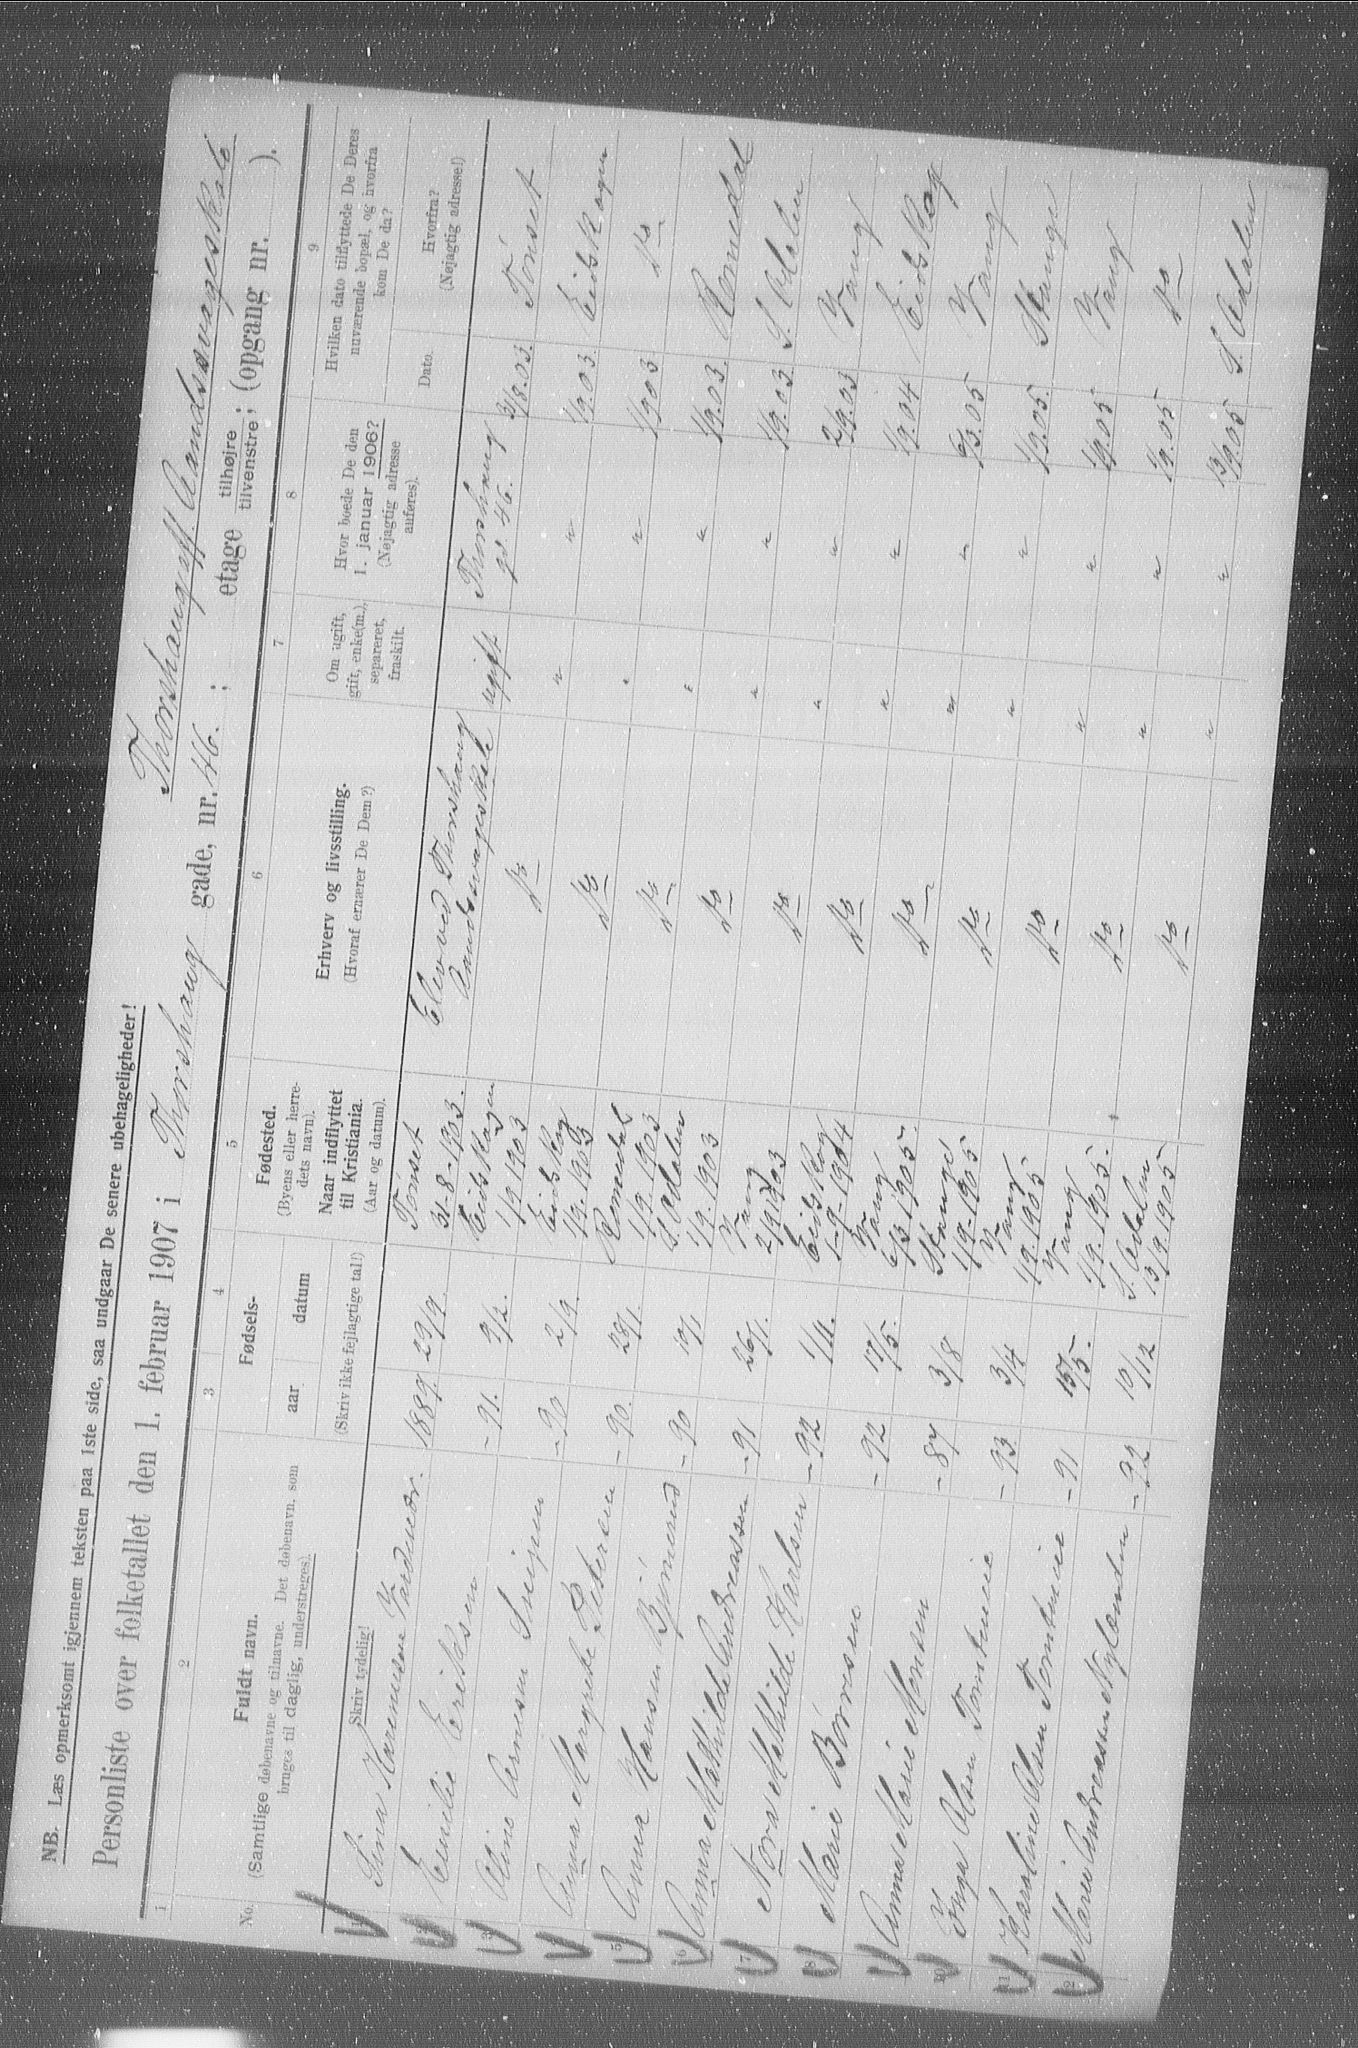 NB. Læs opmerksomt igjennem teksten paa 1ste side, saa undgaar De senere ubehageligheder!
Thorshaug off. Aandssvageskole
Personliste over folketallet den 1. februar 1907 i Thorshaug gade, nr. 46. ; etage tilhøjre tilvenstre; (opgang nr. ).
1 2 3 4 5 6 7 8 9
No.
Fuldt navn.
(Samtlige døbenavne og tilnavne. Det døbenavn, som
bruges til daglig, understreges).
Skriv tydelig!
Fødsels-
aar datum
(Skriv ikke fejlagtige tal!)
Fødested.
(Byens eller herre-
dets navn).
Naar indflyttet
til Kristiania.
(Aar og datum).
Erhverv og livsstilling.
(Hvoraf ernærer De Dem?)
Om ugift,
gift, enke(m.),
separeret,
fraskilt.
Hvor boede De den
1. januar 1906?
(Nøjagtig adresse
anføres).
Hvilken dato tilflyttede De Deres
nuværende bopæl, og hvorfra
kom De da?
Dato.
Hvorfra?
(Nøjagtig adresse!)
1 Karenesen 1887. 29/9. Tönset 31-8-1903. Elev ved Thorshaug Aandssvageskole ugift Thorshaug gd. 46. 31/8.03. Tönset
2 Emilie Eriksen - 91. 9/2. Eidskogen 1/9 1903 do " " 1/9.03. Eidskogen
3 Oline Arnesen - 90 2/9. Eidskog 1/9. 1903 do " " 1/9 03 do
4 Anna Margrete Petersen - 90. 28/1. Romedal 1/9. 1903 do " " 1/9.03. Romedal
5 Anna Hansen Björnerud - 90 S. Odalen 1/9. 1903 do " " 1/9.03 S. Odalen
6 Anna Mathilde Andreassen - 91 26/1. Vang 2/9 1903 do " " 2/9.03 Vang
7 Nora Mathilde Karlsen - 92 1/4. Eidskog 1-9-1904 do " " 1/9.04 Eidskog
8 Marie Börresen - 92 17/5. Vang 6/3 1905. do " " 6/3.05 Vang
9 Anna Marie Monsen - 87 3/8 Stange 1/9-1905 do " " 1/9.05. Stange
10 Inga Olsen - 93 3/4 Vang 1/9.1905 do " " 1/9.05 Vang
11 Karoline Olsen - 91 Vang 1/9.1905. do " " 1/9.05 do
12 Marie Andreassen Nylænder - 92 10/12 S. Odalen 13/9.1905 do " " 13/9.05 S. Odalen